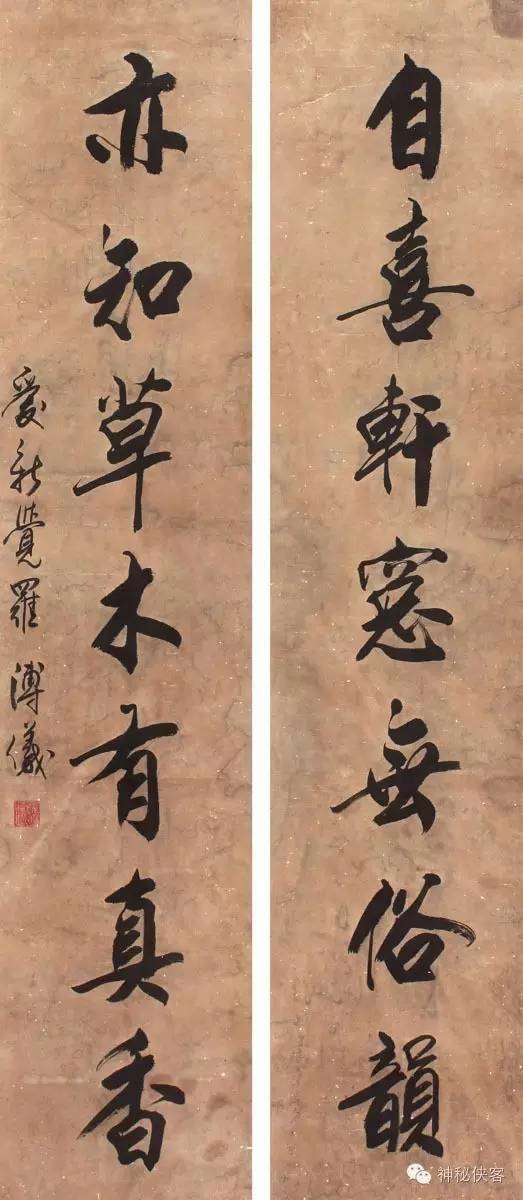 自喜軒窓無俗韻
亦知草木有真香
愛新覺羅 溥儀
神秘侠客